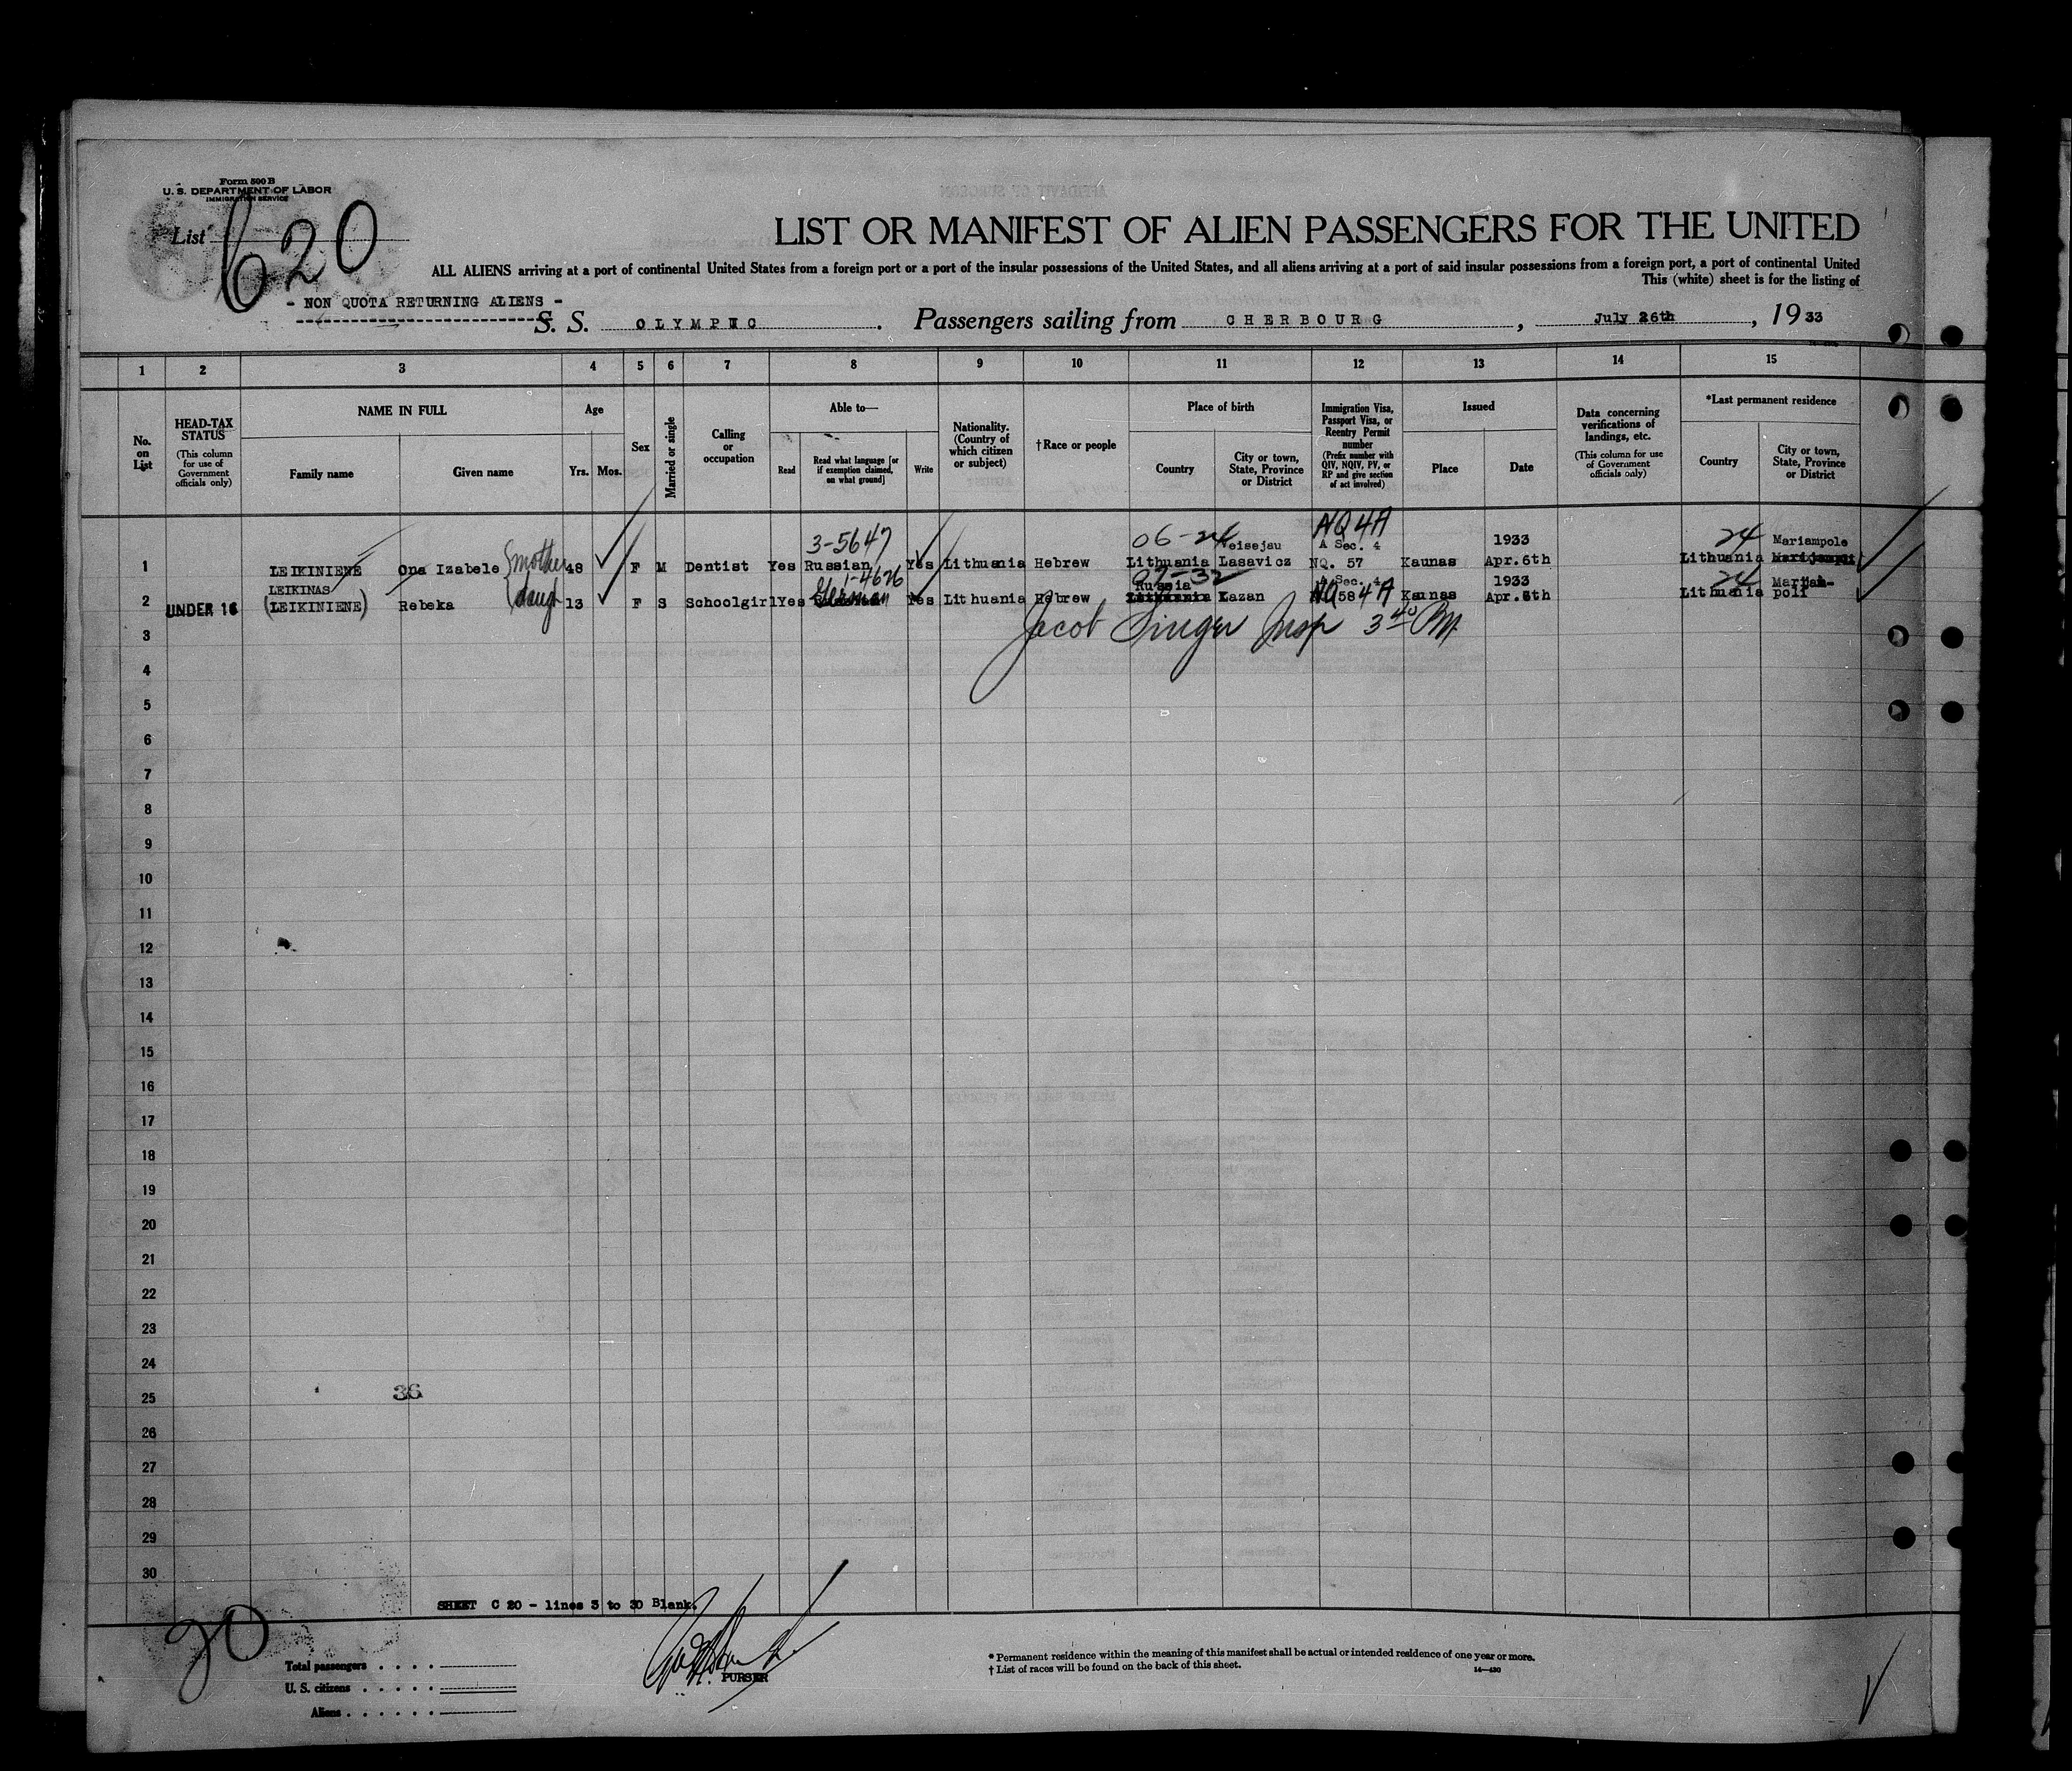 Form 500 B
U. S. DEPARTMENT OF LABOR
IMMIGRATION SERVICE
List 620
LIST OR MANIFEST OF ALIEN PASSENGERS FOR THE UNITED
ALL ALIENS arriving at a port of continental United States from a foreign port or a port of the insular possessions of the United States, and all aliens arriving at a port of said insular possessions from a foreign port, a port of continental United
This (white) sheet is for the listing of
- NON QUOTA RETURNING ALIENS -
S. S. OLYMPIC. Passengers sailing from CHERBOURG, July 26th, 1933
1 2 3 4 5 6 7 8 9 10 11 12 13 14 15
No. on List
HEAD-TAX STATUS
(This column for use of Government officials only)
NAME IN FULL
Family name
Given name
Age
Yrs. Mos.
Sex
Married or single
Calling or occupation
Able to—
Read
Read what language [or if exemption claimed, on what ground]
Write
Nationality. (Country of which citizen or subject)
†Race or people
Place of birth
Country
City or town, State, Province or District
Immigration Visa, Passport Visa, or Reentry Permit number
(Prefix number with QIV, NQIV, PV, or RP and give section of act involved)
Issued
Place
Date
Data concerning verifications of landings, etc.
(This column for use of Government officials only)
*Last permanent residence
Country
City or town, State, Province or District
3-5647 06-24 Veisejau NQ 4A A Sec. 4 1933 24 Mariampole
1 LEIKINIENE Ona Izabele mother 48 F M Dentist Yes Russian Yes Lithuania Hebrew Lithuania Lasavicz NQ. 57 Kaunas Apr.6th Lithuania
LEIKINAS 1-4626 07-32 Russia A Sec. 4 1933 24 Marijam-
2 UNDER 16 (LEIKINIENE) Rebeka daugh 13 F S Schoolgirl Yes German Yes Lithuania Hebrew Kazan NQ 58 4A Kaunas Apr.6th Lithuania poli
Jacob Singer Insp 3 40 PM
3
4
5
6
7
8
9
10
11
12
13
14
15
16
17
18
19
20
21
22
23
24
25
36
26
27
28
29
30
SHEET C 20 - lines 3 to 30 Blank.
20
Total passengers
U. S. citizens
Aliens
PURSER
* Permanent residence within the meaning of this manifest shall be actual or intended residence of one year or more.
† List of races will be found on the back of this sheet.
14—430